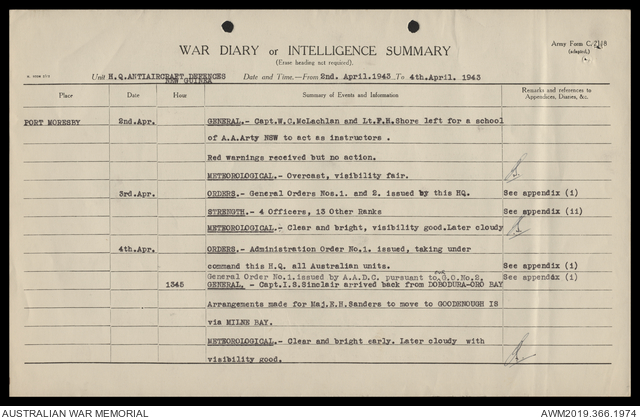 WAR DIARY or INTELLIGENCE SUMMARY
(Erase heading not required).
Army Form C.2118
(adapted.)
Unit H.Q.ANTIAIRCRAFT DEFENCES Date and Time.—From 2nd. April.1943 To 4th.April. 1943
NEW GUINEA
Place Date Hour Summary of Events and Information Remarks and references to Appendices, Diaries, &c.
PORT MORESBY 2nd.Apr. GENERAL.- Capt.W.C.McLachlan and Lt.F.H.Shore left for a school
of A.A.Arty NSW to act as instructors .
Red warnings received but no action.
METEOROLOGICAL.- Overcast, visibility fair.
3rd.Apr. ORDERS.- General Orders Nos.1. and 2. issued by this HQ. See appendix (i)
STRENGTH.- 4 Officers, 13 Other Ranks See appendix (ii)
METEOROLOGICAL.- Clear and bright, visibility good.Later cloudy
4th.Apr. ORDERS.- Administration Order No.1. issued, taking under
command this H.Q. all Australian units. See appendix (i)
General Order No.1.issued by A.A.D.C. pursuant to G.O.No.2. See appendix (i)
1345 GENERAL. - Capt.I.S.Sinclair arrived back from DOBODURA-ORO BAY
Arrangements made for Maj.E.H.Sanders to move to GOODENOUGH IS
via MILNE BAY.
METEOROLOGICAL.- Clear and bright early. Later cloudy with
visibility good.
AUSTRALIAN WAR MEMORIAL AWM2019.366.1974